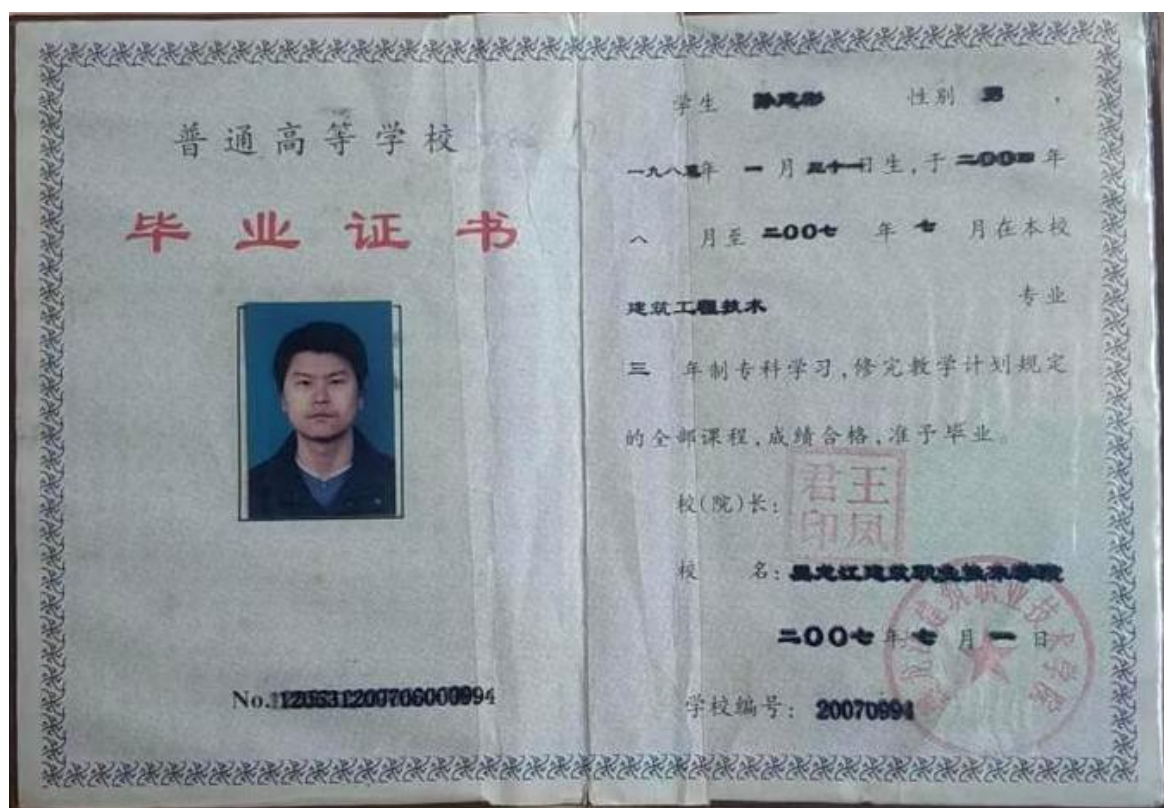 普通高等学校
毕业证书
No.120531200706000994
学生 性别 男 ,
一九八 年 一 月 三十一日生,于 二00四 年
八 月至 二00七 年 七 月在本校
建筑工程技术 专业
三 年制专科学习,修完教学计划规定
的全部课程,成绩合格,准予毕业。
校(院)长:
君王
印凤
校 名:黑龙江建筑职业技术学院
二00七年七月一日
学校编号:20070994
黑龙江建筑职业技术学院